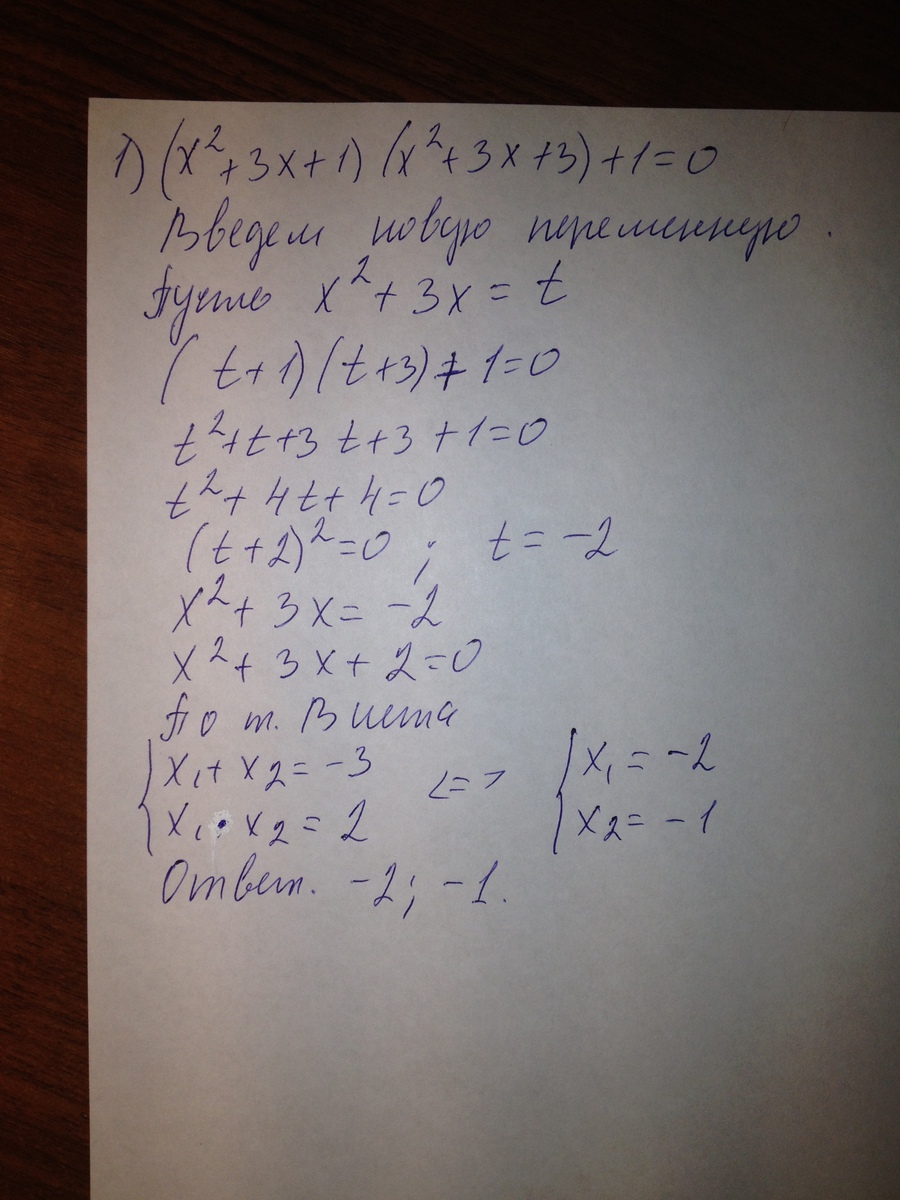 1) (x²+3x+1) (x²+3x+3)+1=0
Введем новую переменную.
Пусть x²+3x=t
(t+1)(t+3)+1=0
t²+t+3t+3+1=0
t²+4t+4=0
(t+2)²=0 ; t=-2
x²+3x=-2
x²+3x+2=0
По т. Виета
{x₁+x₂=-3 <=> {x₁=-2
{x₁·x₂=2 {x₂=-1
Ответ. -2; -1.